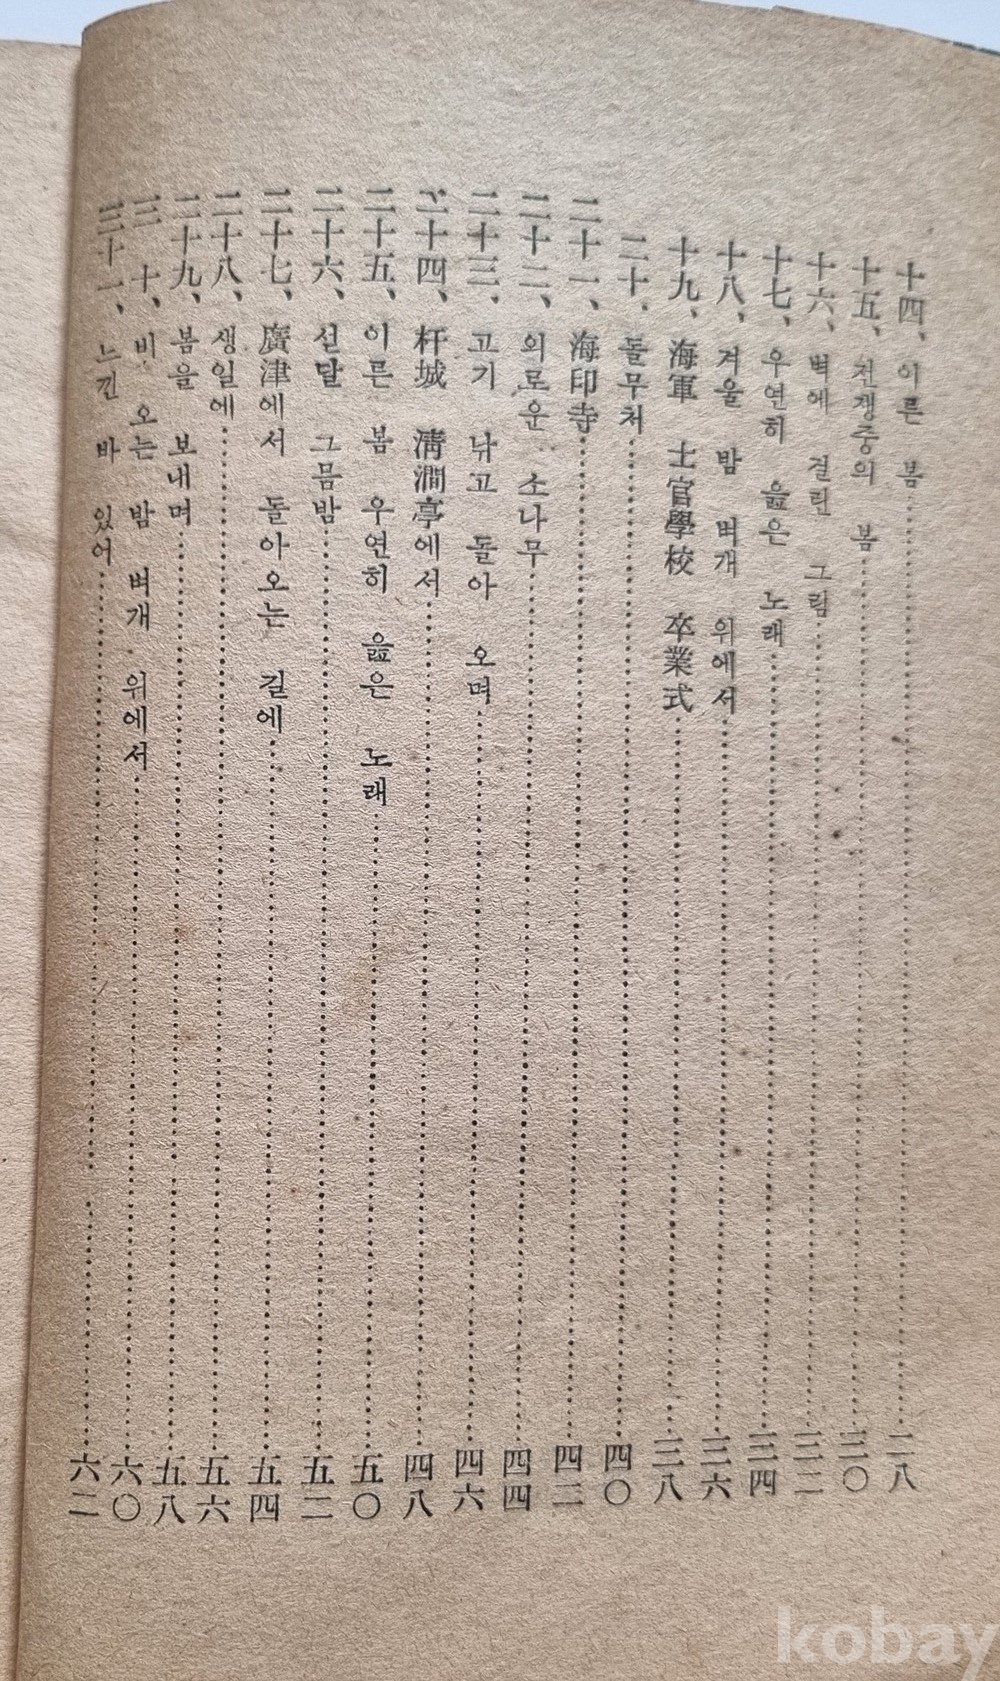 十四、 이른 봄……二八
十五、 전쟁중의 봄……三〇
十六、 벽에 걸린 그림……三二
十七、 우연히 읊은 노래……三四
十八、 겨울 밤 벼개 위에서……三六
十九、 海軍 士官學校 卒業式……三八
二十、 돌무처……四〇
二十一、 海印寺……四二
二十二、 외로운 소나무……四四
二十三、 고기 낚고 돌아 오며……四六
二十四、 杆城 淸澗亭에서……四八
二十五、 이른 봄 우연히 읊은 노래……五〇
二十六、 섣달 그믐밤……五二
二十七、 廣津에서 돌아오는 길에……五四
二十八、 생일에……五六
二十九、 봄을 보내며……五八
三十、 비 오는 밤 벼개 위에서……六〇
三十一、 느낀 바 있어……六二
kobay